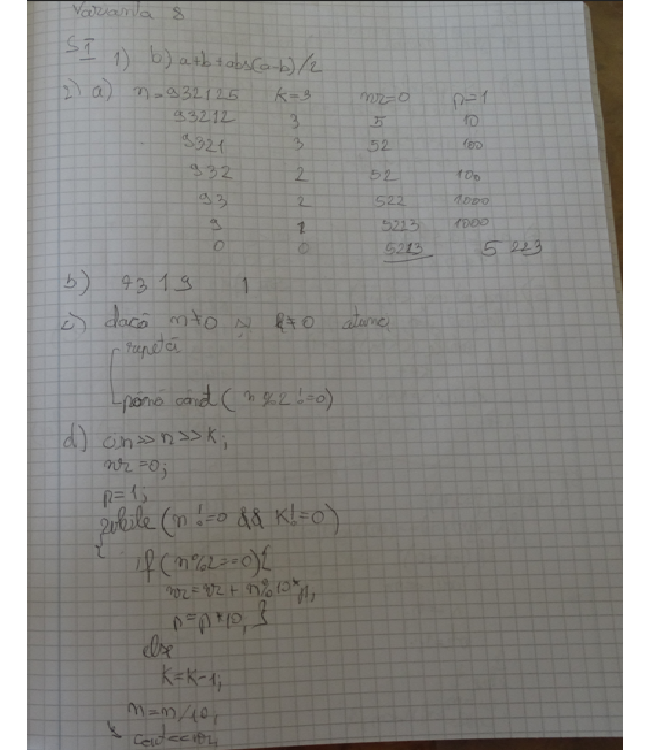 Varianta 8
SI 1) b) a+b+abs(a-b)/2
2) a) n=932125 k=3 nr=0 p=1
93212 3 5 10
9321 3 52 100
932 2 52 100
93 2 522 1000
9 1 5223 1000
0 0 5213 5 223
b) 9319 1
c) dacă n≠0 și k≠0 atunci
repetă
până când (n%2!=0)
d) cin>>n>>k;
nr=0;
p=1;
while(n!=0 && k!=0)
{
if(n%2==0){
nr=nr+n%10*p;
p=p*10; }
else
k=k-1;
n=n/10;
}
cout<<nr;